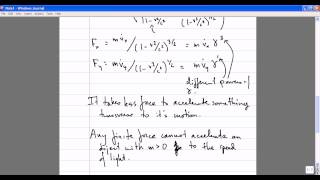 Note1 - Windows Journal
√1-v²/c²   (1-v²/c²)^{3/2}
Fₓ = m v̇ₓ/(1-v²/c²)^{3/2} = m v̇ₓ γ³
F_y = m v̇_y/(1-v²/c²)^{1/2} = m v̇_y γ
different powers of
γ.
It takes less force to accelerate something
transverse to it's motion.
Any finite force cannot accelerate an
object with m > 0 to the speed
of light.